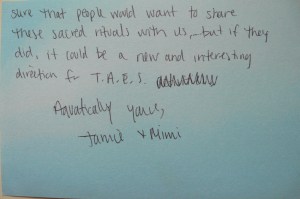 sure that people would want to share
these sacred rituals with us, but if they
did, it could be a new and interesting
direction for T.A.E.S.
Aquatically yours,
Jamie + Mimi